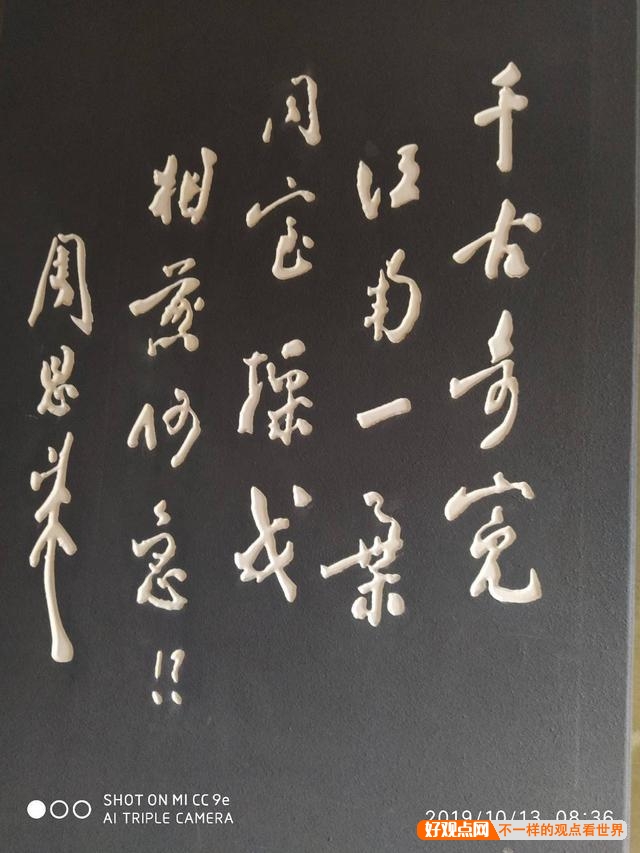 千古奇冤
江南一葉
同室操戈
相煎何急!?
周恩来
SHOT ON MI CC 9e
AI TRIPLE CAMERA
2019/10/13 08:36
好观点网 不一样的观点看世界